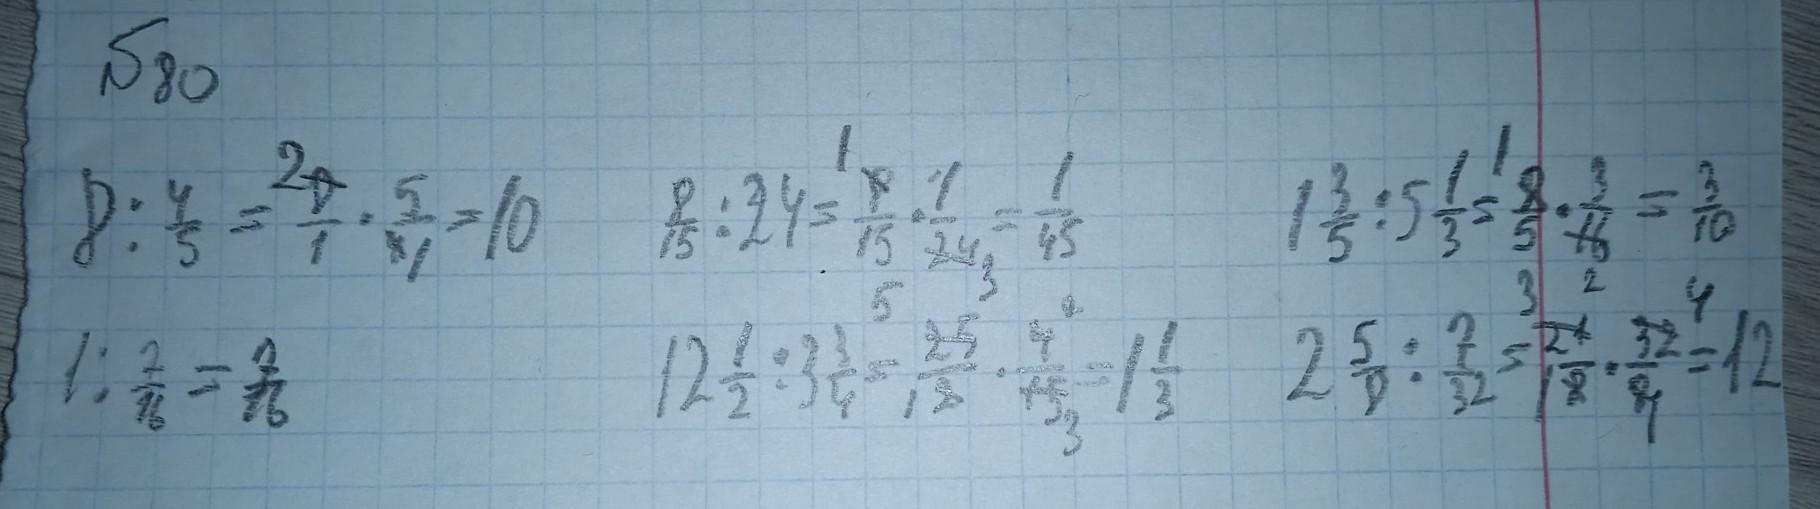 №80
8 : 4/5 = 8/1 · 5/4 = 10   8/15 : 24 = 8/15 · 1/24 = 1/45   1 3/5 : 5 1/3 = 8/5 · 3/16 = 3/10
1 : 7/16 = 7/16   12 1/2 : 3 3/4 = 25/2 · 4/15 = 1 1/3   2 5/8 : 7/32 = 21/8 · 32/7 = 12